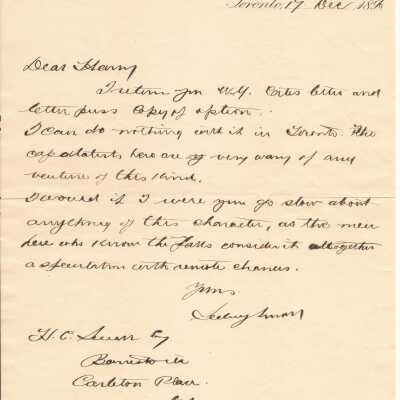 Toronto, 17 Dec 189
Dear Henry
I return you W.H. letter and
letter press copy of option.
I can do nothing with it in Toronto. The
capitalists here are very wary of any
venture of this kind.
I would if I were you go slow about
anything of this character, as the men
here who know the Falls consider it altogether
a speculation with remote chances.
Yours
H. C.
Barrister etc
Carleton Place